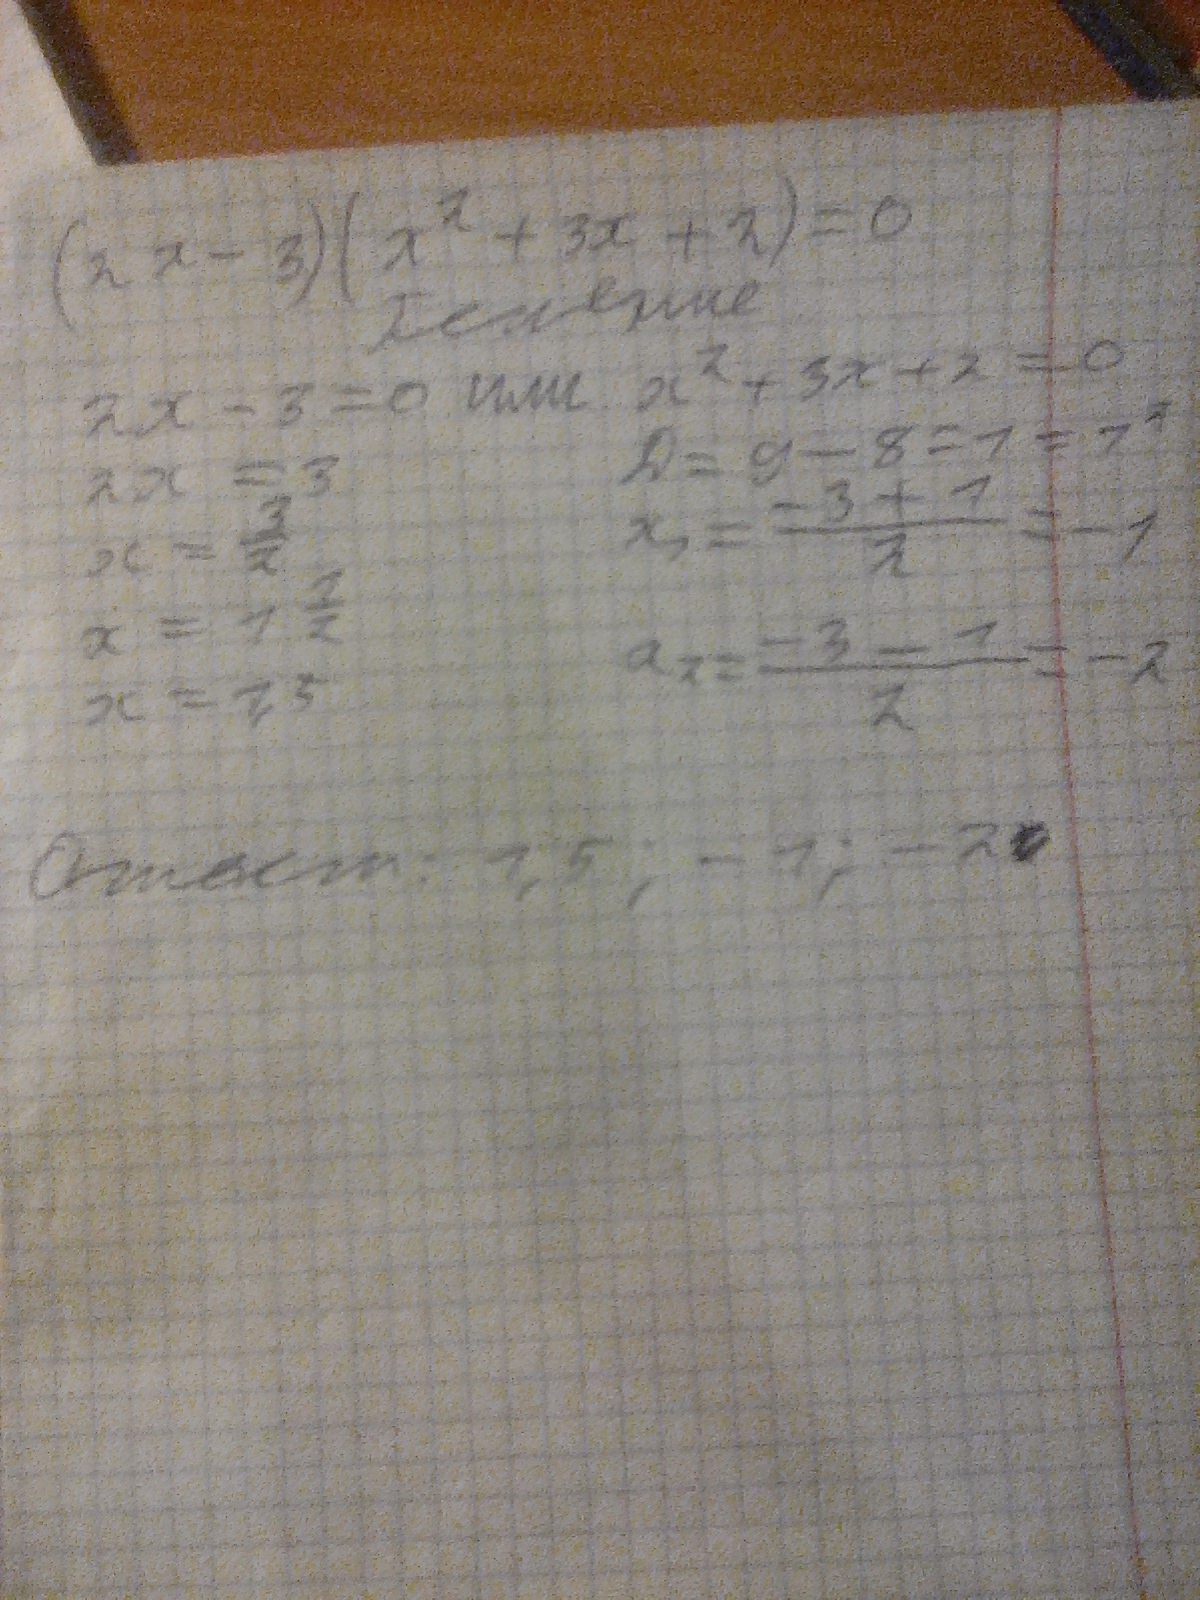 (2x-3)(x²+3x+2)=0
Решение
2x-3=0 или x²+3x+2=0
2x=3
x=3/2
x=1 1/2
x=1,5
D=9-8=1=1²
x₁=(-3+1)/2=-1
x₂=(-3-1)/2=-2
Ответ: 1,5; -1; -2.